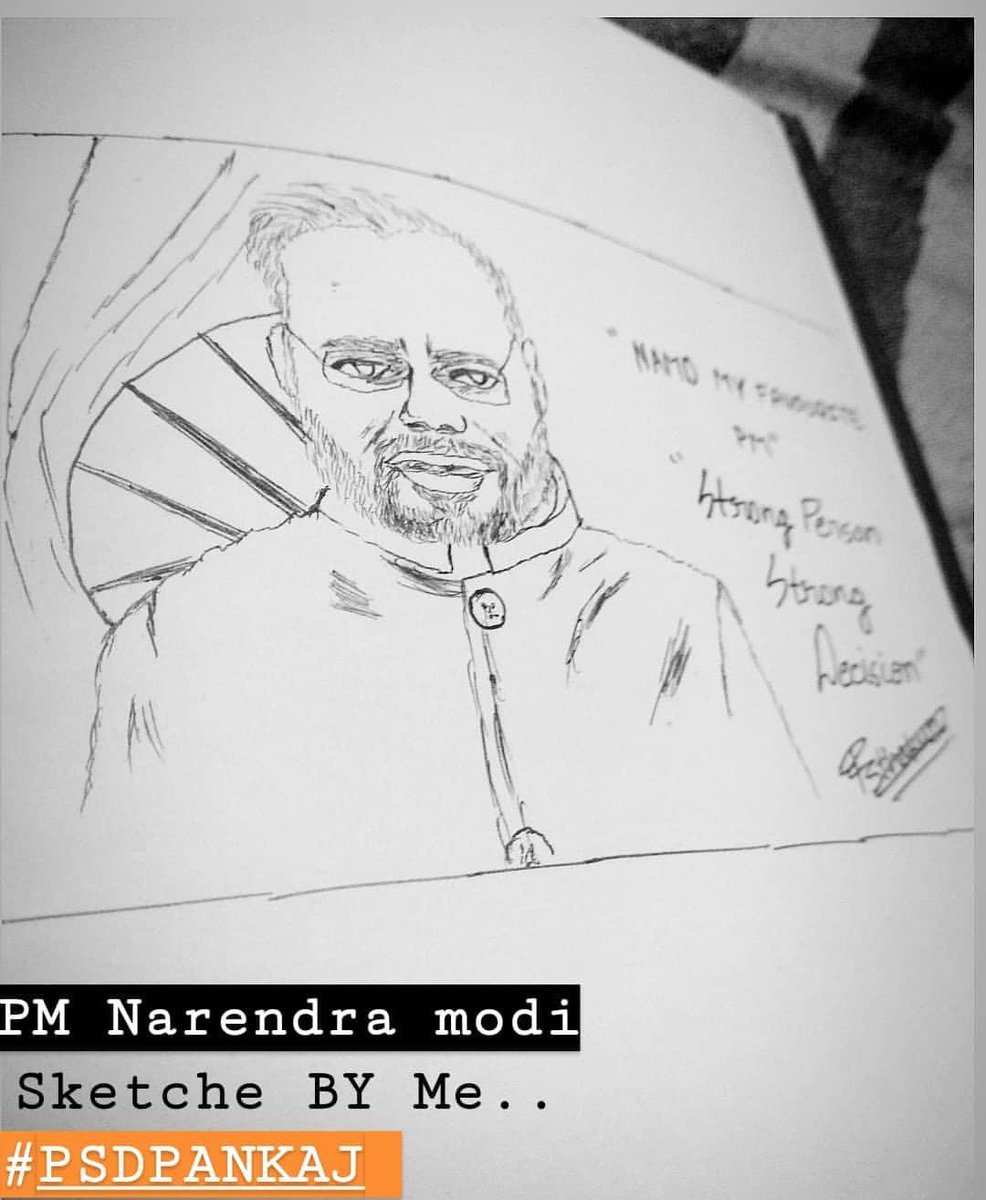 "NAMO MY FAVOURITE
PM"
"Strong Person
Strong
Decision"
PM Narendra modi
Sketche BY Me..
#PSDPANKAJ